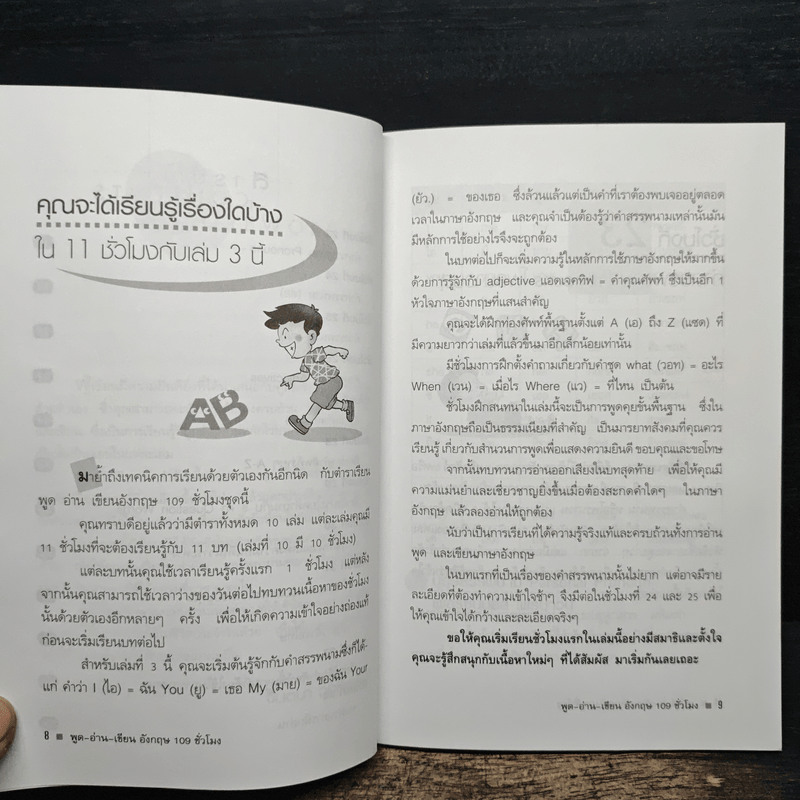 คุณจะได้เรียนรู้เรื่องใดบ้าง
ใน 11 ชั่วโมงกับเล่ม 3 นี้
AB
มาย้ำถึงเทคนิคการเรียนด้วยตัวเองกันอีกนิด กับตำราเรียน
พูด อ่าน เขียนอังกฤษ 109 ชั่วโมงชุดนี้
คุณทราบดีอยู่แล้วว่ามีตำราทั้งหมด 10 เล่ม แต่ละเล่มคุณมี
11 ชั่วโมงที่จะต้องเรียนรู้กับ 11 บท (เล่มที่ 10 มี 10 ชั่วโมง)
แต่ละบทนั้นคุณใช้เวลาเรียนรู้ครั้งแรก 1 ชั่วโมง แต่หลัง
จากนั้นคุณสามารถใช้เวลาว่างของวันต่อไปทบทวนเนื้อหาของชั่วโมง
นั้นด้วยตัวเองอีกหลายๆ ครั้ง เพื่อให้เกิดความเข้าใจอย่างถ่องแท้
ก่อนจะเริ่มเรียนบทต่อไป
สำหรับเล่มที่ 3 นี้ คุณจะเริ่มต้นรู้จักกับคำสรรพนามซึ่งก็ได้-
แก่ คำว่า I (ไอ) = ฉัน You (ยู) = เธอ My (มาย) = ของฉัน Your
8 ■ พูด-อ่าน-เขียน อังกฤษ 109 ชั่วโมง
(ยัว.) = ของเธอ ซึ่งล้วนแล้วแต่เป็นคำที่เราต้องพบเจออยู่ตลอด
เวลาในภาษาอังกฤษ และคุณจำเป็นต้องรู้ว่าคำสรรพนามเหล่านั้นมัน
มีหลักการใช้อย่างไรจึงจะถูกต้อง
ในบทต่อไปก็จะเพิ่มความรู้ในหลักการใช้ภาษาอังกฤษให้มากขึ้น
ด้วยการรู้จักกับ adjective แอดเจคทิฟ = คำคุณศัพท์ ซึ่งเป็นอีก 1
หัวใจภาษาอังกฤษที่แสนสำคัญ
คุณจะได้ฝึกท่องศัพท์พื้นฐานตั้งแต่ A (เอ) ถึง Z (แซด) ที่
มีความยาวกว่าเล่มที่แล้วขึ้นมาอีกเล็กน้อยเท่านั้น
มีชั่วโมงการฝึกตั้งคำถามเกี่ยวกับคำชุด what (วอท) = อะไร
When (เวน) = เมื่อไร Where (แว) = ที่ไหน เป็นต้น
ชั่วโมงฝึกสนทนาในเล่มนี้จะเป็นการพูดคุยขั้นพื้นฐาน ซึ่งใน
ภาษาอังกฤษถือเป็นธรรมเนียมที่สำคัญ เป็นมารยาทสังคมที่คุณควร
เรียนรู้ เกี่ยวกับสำนวนการพูดเพื่อแสดงความยินดี ขอบคุณและขอโทษ
จากนั้นทบทวนการอ่านออกเสียงในบทสุดท้าย เพื่อให้คุณมี
ความแม่นยำและเชี่ยวชาญยิ่งขึ้นเมื่อต้องสะกดคำใดๆ ในภาษา
อังกฤษ แล้วลองอ่านให้ถูกต้อง
นับว่าเป็นการเรียนที่ได้ความรู้จริงแท้และครบถ้วนทั้งการอ่าน
พูด และเขียนภาษาอังกฤษ
ในบทแรกที่เป็นเรื่องของคำสรรพนามนั้นไม่ยาก แต่อาจมีราย
ละเอียดที่ต้องทำความเข้าใจช้าๆ จึงมีต่อในชั่วโมงที่ 24 และ 25 เพื่อ
ให้คุณเข้าใจได้กว้างและละเอียดจริงๆ
ขอให้คุณเริ่มเรียนชั่วโมงแรกในเล่มนี้อย่างมีสมาธิและตั้งใจ
คุณจะรู้สึกสนุกกับเนื้อหาใหม่ๆ ที่ได้สัมผัส มาเริ่มกันเลยเถอะ
พูด-อ่าน-เขียน อังกฤษ 109 ชั่วโมง ■ 9